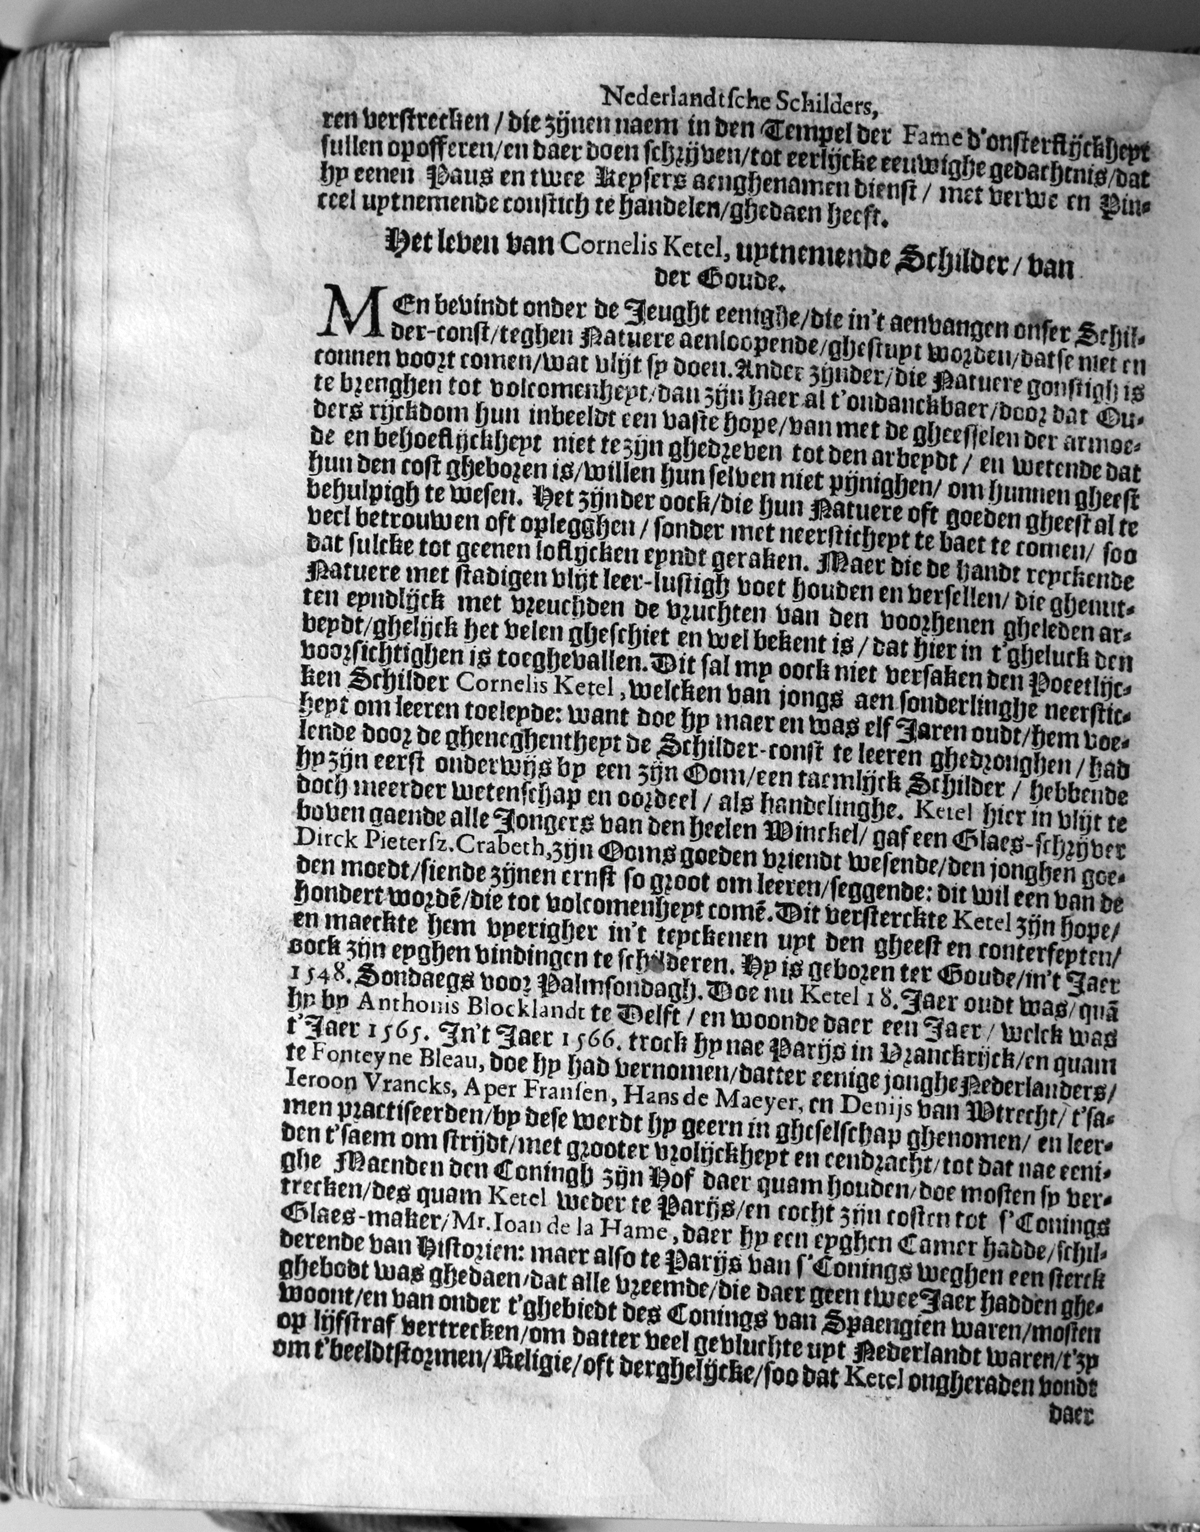 Nederlandtsche Schilders,
ren verstrecken / die zijnen naem in den Tempel der Fame d'onsterflijckheyt
sullen opofferen/en daer doen schrijven/tot eerlijcke eeuwighe gedachtnis/dat
hy eenen Paus en twee Keysers aenghenamen dienst / met verwe en Pin-
ceel uytnemende constich te handelen/ghedaen heeft.
Het leven van Cornelis Ketel, uytnemende Schilder / van
der Goude.
MEn bevindt onder de Jeught eenighe/die in't aenvangen onser Schil-
der-const/teghen Natuere aenloopende/ghestuyt worden/datse niet en
connen voort comen/wat vlijt sy doen. Ander zijnder/die Natuere gonstigh is
te brenghen tot volcomenheyt/dan zijn haer al t'ondanckbaer/door dat Ou-
ders rijckdom hun inbeeldt een vaste hope/van met de gheesselen der armoe-
de en behoeflijckheyt niet te zijn ghedreven tot den arbeydt / en wetende dat
hun den cost gheboren is/willen hun selven niet pijnighen/ om hunnen gheest
behulpigh te wesen. Het zijnder oock/die hun Natuere oft goeden gheest al te
veel betrouwen oft oplegghen / sonder met neersticheyt te baet te comen/ soo
dat sulcke tot geenen loflijcken eyndt geraken. Maer die de handt reyckende
Natuere met stadigen vlijt leer-lustigh voet houden en versellen/ die ghenut-
ten eyndlijck met vreuchden de vruchten van den voorhenen gheleden ar-
veydt/ghelijck het velen gheschiet en wel bekent is / dat hier in t'gheluck den
voorsichtighen is toeghevallen. Dit sal my oock niet versaken den Poeetlijc-
ken Schilder Cornelis Ketel, welcken van jongs aen sonderlinghe neerstic-
heyt om leeren toeleyde: want doe hy maer en was elf Jaren oudt/hem voe-
lende door de gheneghentheyt de Schilder-const te leeren ghedronghen / had
hy zijn eerst onderwijs by een zijn Oom/een taemlijck Schilder / hebbende
doch meerder wetenschap en oordeel / als handelinghe. Ketel hier in vlijt te
boven gaende alle Jongers van den heelen Winckel/ gaf een Glaes-schrijver
Dirck Pietersz. Crabeth, zijn Ooms goeden vriendt wesende/den jonghen goe-
den moedt/siende zijnen ernst so groot om leeren/seggende: dit wil een van de
hondert wordē/die tot volcomenheyt comē. Dit versterckte Ketel zijn hope/
en maeckte hem vyerigher in't teyckenen uyt den gheest en conterfeyten/
oock zijn eyghen vindingen te schilderen. Hy is geboren ter Goude/in't Jaer
1548. Sondaegs voor Palmsondagh. Doe nu Ketel 18. Jaer oudt was/quā
hy by Anthonis Blocklandt te Delft / en woonde daer een Jaer / welck was
t'Jaer 1565. In't Jaer 1566. trock hy nae Parijs in Vranckrijck/en quam
te Fonteyne Bleau, doe hy had vernomen/datter eenige jonghe Nederlanders/
Ieroon Vrancks, Aper Fransen, Hans de Maeyer, en Denijs van Wtrecht/ t'sa-
men practiseerden/by dese werdt hy geern in gheselschap ghenomen/ en leer-
den t'saem om strijdt/met grooter vrolijckheyt en eendracht/tot dat nae eeni-
ghe Maenden den Coningh zijn Hof daer quam houden/doe mosten sy ver-
trecken/des quam Ketel weder te Parijs/en cocht zijn costen tot s'Conings
Glaes-maker/Mr. Ioan de la Hame, daer hy een eyghen Camer hadde/schil-
derende van Historien: maer also te Parijs van s'Conings weghen een sterck
ghebodt was ghedaen/dat alle vreemde/die daer geen twee Jaer hadden ghe-
woont/en van onder t'ghebiedt des Conings van Spaengien waren/mosten
op lijfstraf vertrecken/om datter veel gevluchte uyt Nederlandt waren/t'zy
om t'beeldtstormen/Religie/oft derghelijcke/soo dat Ketel ongheraden vondt
daer